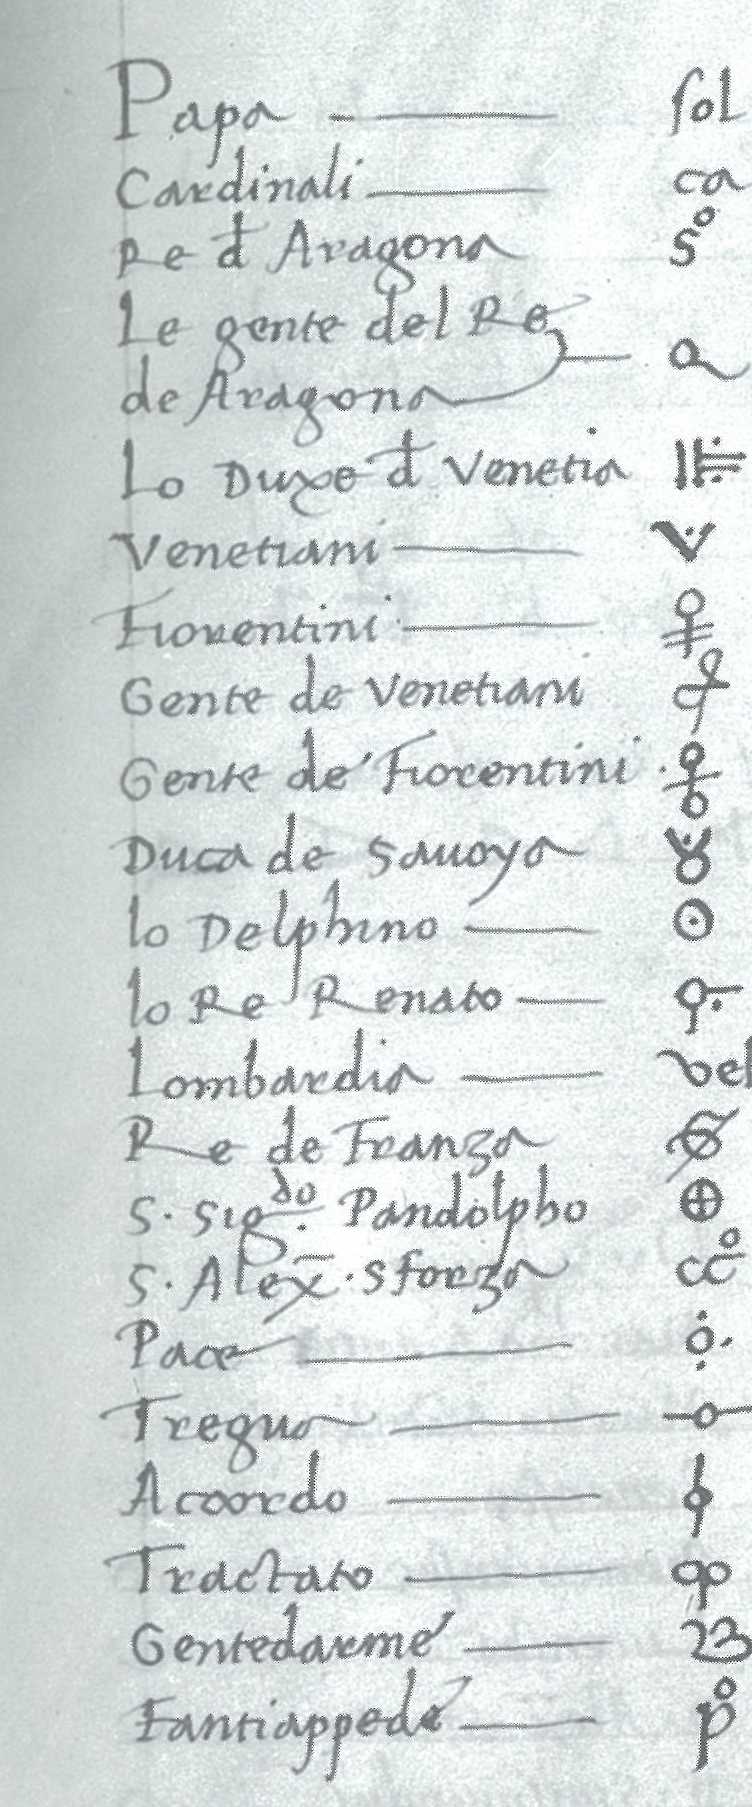 Papa — sol
Cardinali — ca
Re d Aragona s°
Le gente del Re
de Aragona —
Lo Duxe d Venetia
Venetiani —
Fiorentini —
Gente de Venetiani
Gente de Fiorentini
Duca de Sauoya
lo Delphino —
lo Re Renato —
Lombardia — vel
Re de Franza
S. Sig.do Pandolpho
S. Alex̄. Sforza cc°
Pace —
Tregua —
Acordo —
Tractato —
Gentedarme —
Fantiappede — p°